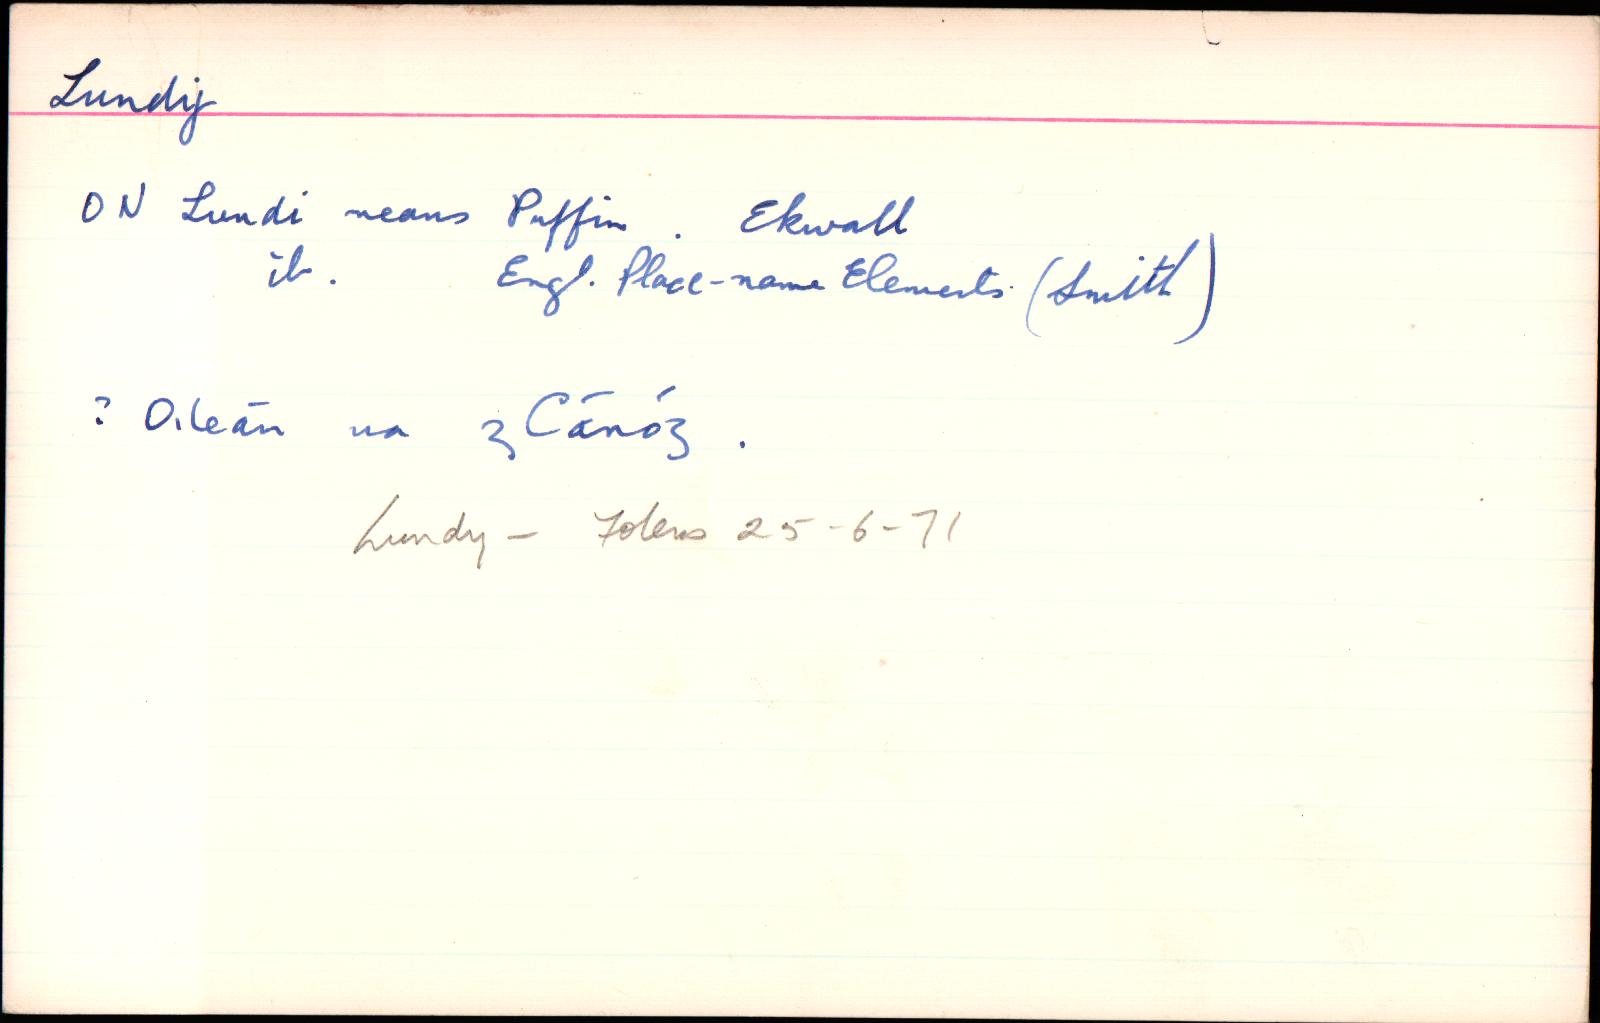 Lundy
ON Lundi means Puffin. Ekwall
ib. Engl. Place-name Elements. (Smith)
? Oileán na gCánóg.
Lundy - Folens 25-6-71